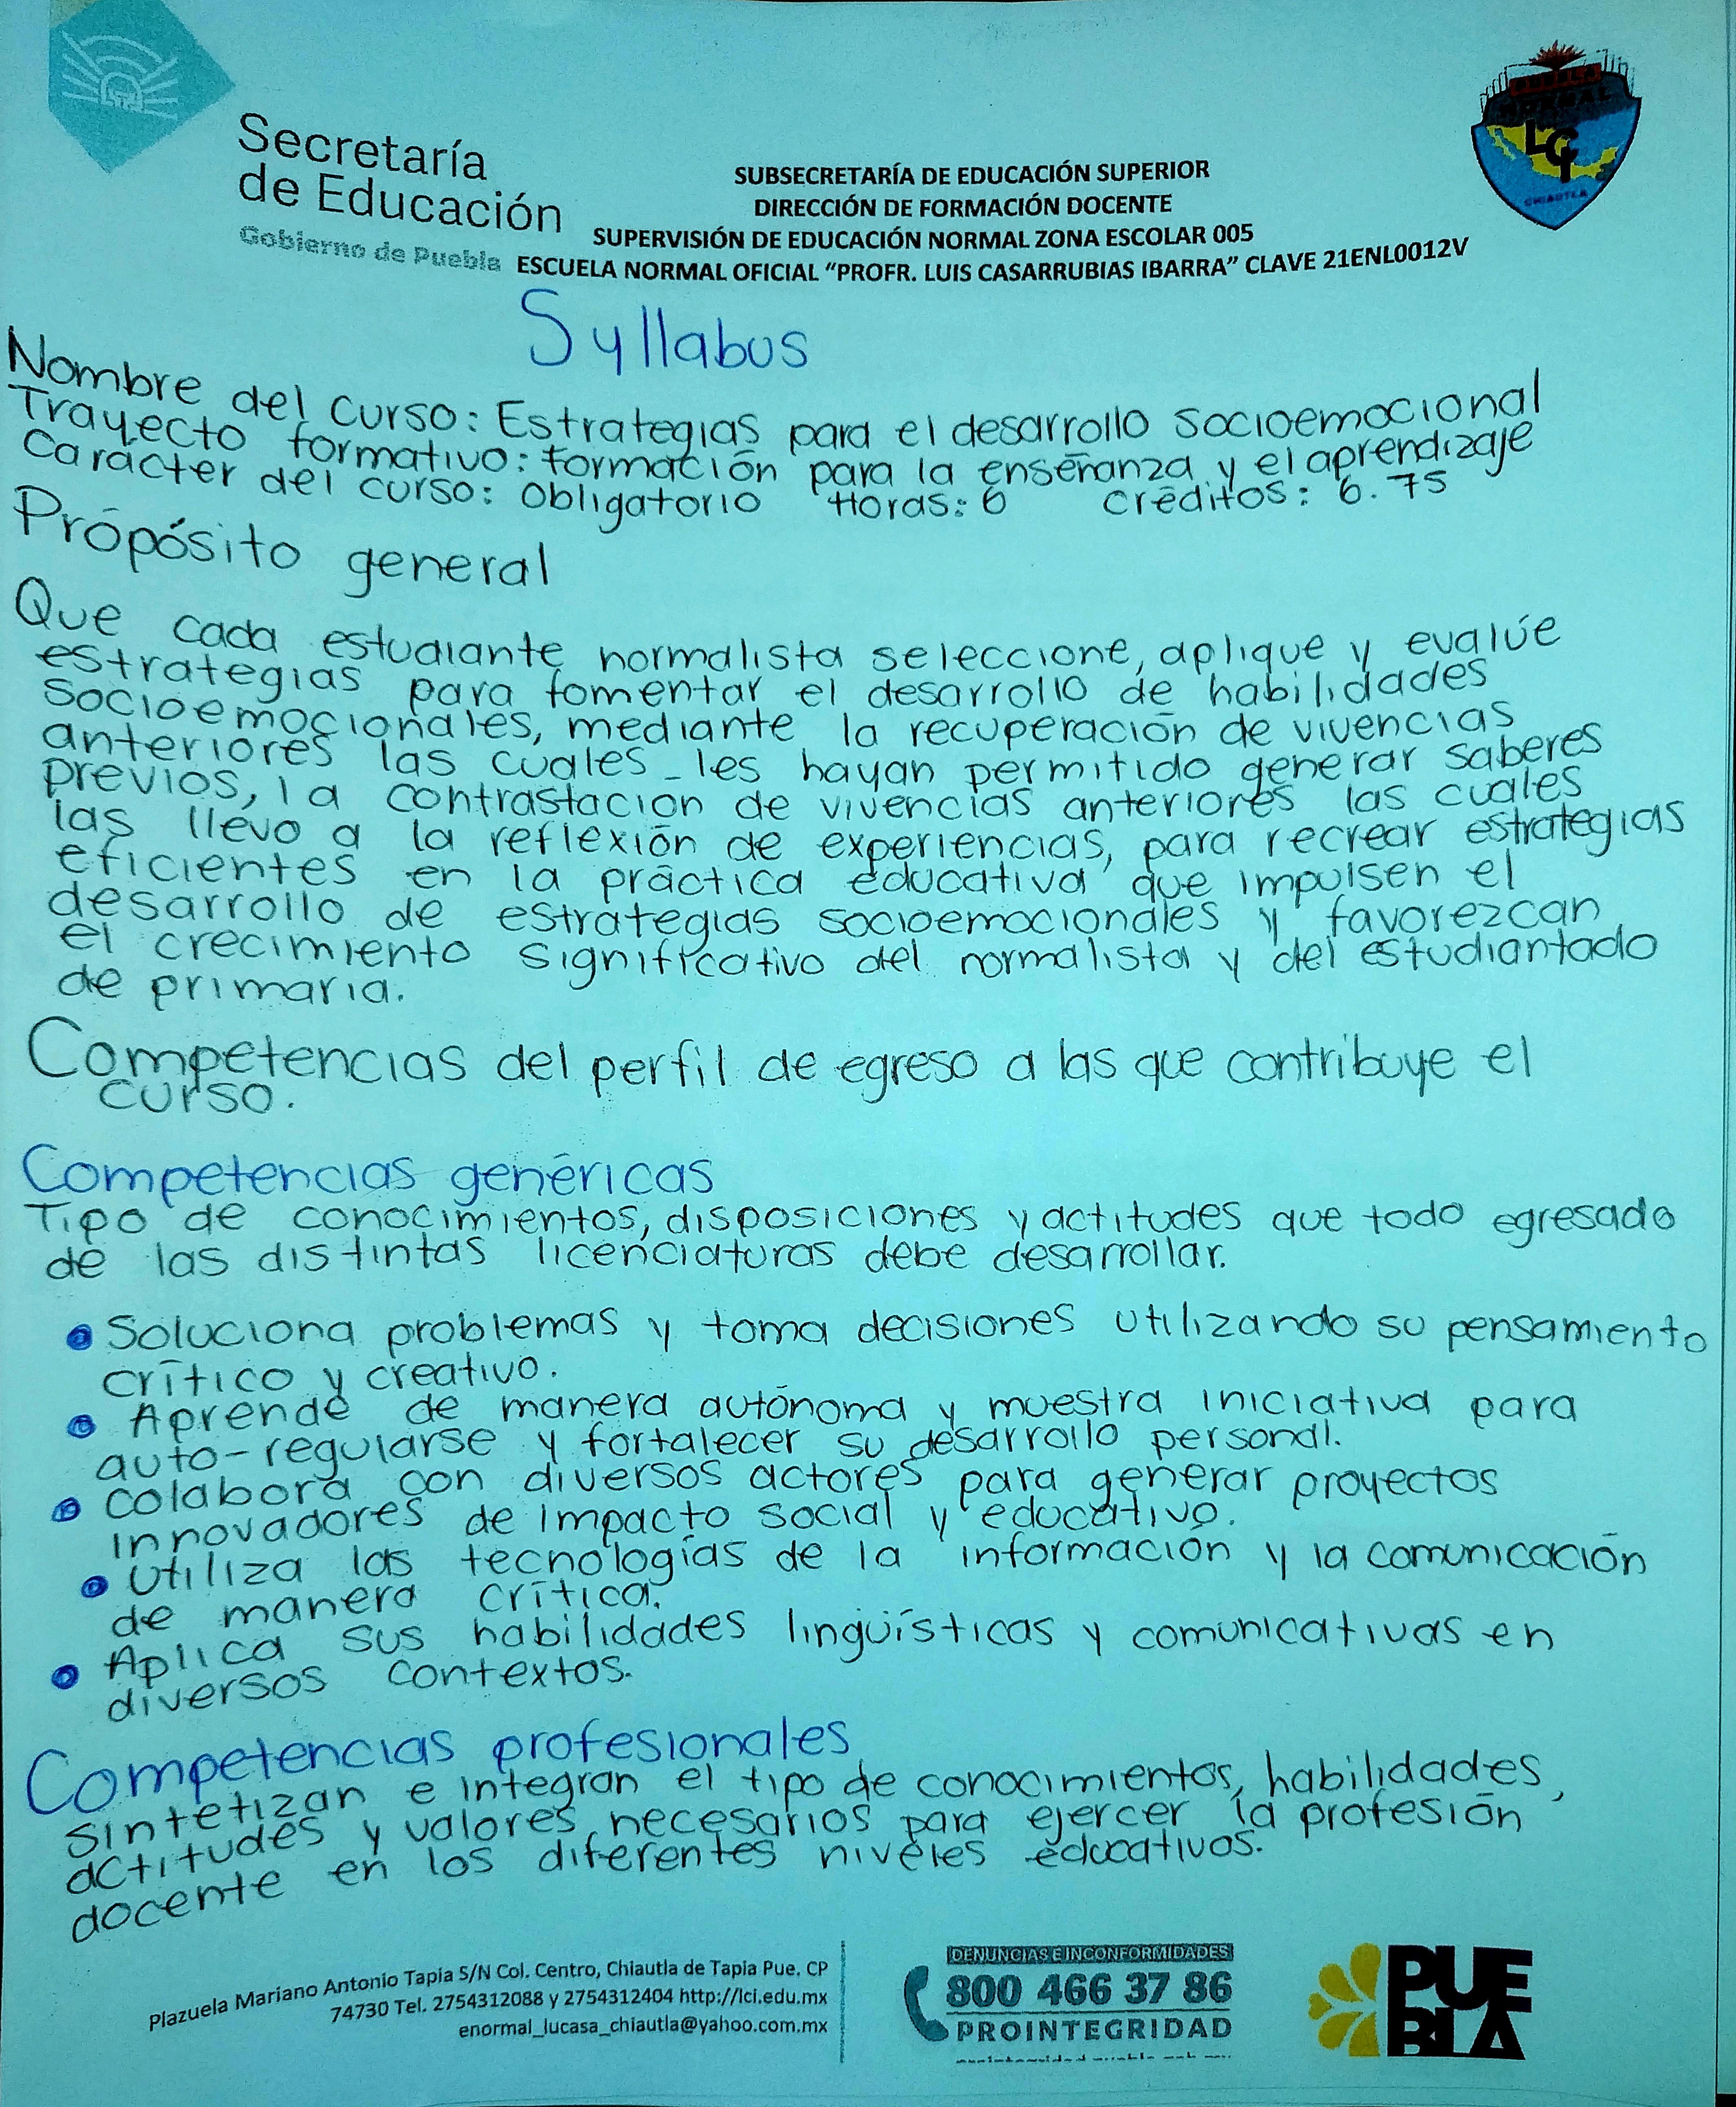 Secretaría
de Educación
Gobierno de Puebla
SUBSECRETARÍA DE EDUCACIÓN SUPERIOR
DIRECCIÓN DE FORMACIÓN DOCENTE
SUPERVISIÓN DE EDUCACIÓN NORMAL ZONA ESCOLAR 005
ESCUELA NORMAL OFICIAL "PROFR. LUIS CASARRUBIAS IBARRA" CLAVE 21ENL0012V
NORMAL
LCI
CHIAUTLA
Syllabus
Nombre del curso: Estrategias para el desarrollo socioemocional
Trayecto formativo: formación para la enseñanza y el aprendizaje
Carácter del curso: Obligatorio Horas: 6 Créditos: 6.75
Própósito general
Que cada estudiante normalista seleccione, aplique y evalúe
estrategias para fomentar el desarrollo de habilidades
socioemocionales, mediante la recuperación de vivencias
anteriores las cuales les hayan permitido generar saberes
previos, la contrastación de vivencias anteriores las cuales
las llevo a la reflexión de experiencias, para recrear estrategias
eficientes en la práctica educativa que impulsen el
desarrollo de estrategias socioemocionales y favorezcan
el crecimiento significativo del normalista y del estudiantado
de primaria.
Competencias del perfil de egreso a las que contribuye el
curso.
Competencias genéricas
Tipo de conocimientos, disposiciones y actitudes que todo egresado
de las distintas licenciaturas debe desarrollar.
• Soluciona problemas y toma decisiones utilizando su pensamiento
crítico y creativo.
• Aprende de manera autónoma y muestra iniciativa para
auto-regularse y fortalecer su desarrollo personal.
• Colabora con diversos actores para generar proyectos
innovadores de impacto social y educativo.
• Utiliza las tecnologías de la información y la comunicación
de manera crítica.
• Aplica sus habilidades lingüísticas y comunicativas en
diversos contextos.
Competencias profesionales
Sintetizan e integran el tipo de conocimientos, habilidades,
actitudes y valores necesarios para ejercer la profesión
docente en los diferentes niveles educativos.
Plazuela Mariano Antonio Tapia S/N Col. Centro, Chiautla de Tapia Pue. CP
74730 Tel. 2754312088 y 2754312404 http://lci.edu.mx
enormal_lucasa_chiautla@yahoo.com.mx
DENUNCIAS E INCONFORMIDADES
800 466 37 86
PROINTEGRIDAD
PUE
BLA